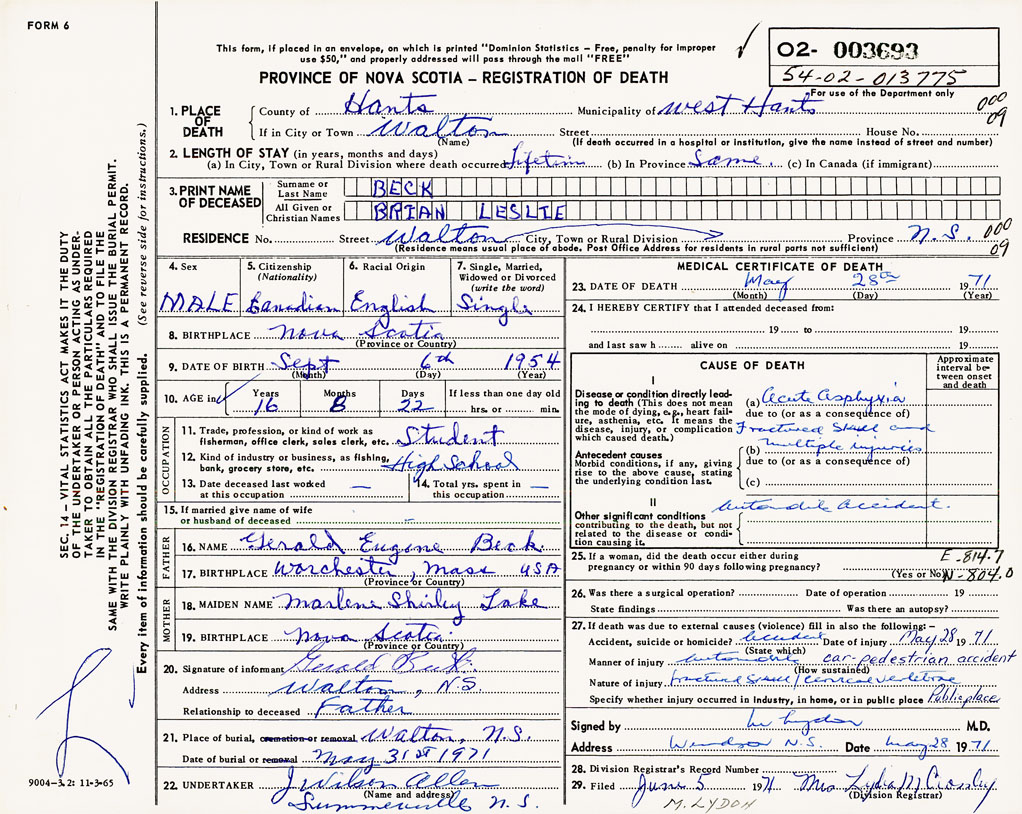 FORM 6
This form, if placed in an envelope, on which is printed "Dominion Statistics – Free, penalty for improper
use $50," and properly addressed will pass through the mail "FREE"
PROVINCE OF NOVA SCOTIA – REGISTRATION OF DEATH
O2- 003693
54-02-013775
For use of the Department only
1. PLACE OF DEATH
County of Hants Municipality of West Hants 000 09
If in City or Town Walton Street House No.
(Name) (If death occurred in a hospital or institution, give the name instead of street and number)
2. LENGTH OF STAY (in years, months and days)
(a) In City, Town or Rural Division where death occurred Lifetime (b) In Province Same (c) In Canada (if immigrant)
3. PRINT NAME OF DECEASED
Surname or Last Name BECK
All Given or Christian Names BRIAN LESLIE
RESIDENCE No. Street Walton City, Town or Rural Division Province N.S. 000 09
(Residence means usual place of abode. Post Office Address for residents in rural parts not sufficient)
4. Sex MALE
5. Citizenship (Nationality) Canadian
6. Racial Origin English
7. Single, Married, Widowed or Divorced (write the word) Single
8. BIRTHPLACE Nova Scotia
(Province or Country)
9. DATE OF BIRTH Sept 6th 1954
(Month) (Day) (Year)
10. AGE in Years 16 Months 8 Days 22 If less than one day old hrs. or min.
OCCUPATION
11. Trade, profession, or kind of work as
fisherman, office clerk, sales clerk, etc. Student
12. Kind of industry or business, as fishing,
bank, grocery store, etc. High School
13. Date deceased last worked at this occupation —
14. Total yrs. spent in this occupation —
15. If married give name of wife
or husband of deceased
FATHER
16. NAME Gerald Eugene Beck
17. BIRTHPLACE Worchester, Mass USA
(Province or Country)
MOTHER
18. MAIDEN NAME Marlene Shirley Lake
19. BIRTHPLACE Nova Scotia
(Province or Country)
20. Signature of informant Gerald Beck
Address Walton, N.S.
Relationship to deceased Father
21. Place of burial, cremation or removal Walton, N.S.
Date of burial or removal May 31st 1971
22. UNDERTAKER J Wilson Allen
(Name and address)
Summerville N.S.
MEDICAL CERTIFICATE OF DEATH
23. DATE OF DEATH May 28th 1971
(Month) (Day) (Year)
24. I HEREBY CERTIFY that I attended deceased from:
19 to 19
and last saw h alive on 19
CAUSE OF DEATH
Approximate interval between onset and death
I
Disease or condition directly leading to death (This does not mean
the mode of dying, e.g., heart failure, asthenia, etc. It means the
disease, injury, or complication which caused death.)
(a) Acute Asphyxia
due to (or as a consequence of)
Fractured Skull and
Antecedent causes
Morbid conditions, if any, giving rise to the above cause, stating
the underlying condition last.
(b) multiple injuries
due to (or as a consequence of)
(c)
II
Other significant conditions
contributing to the death, but not related to the disease or condition causing it.
Automobile Accident.
25. If a woman, did the death occur either during
pregnancy or within 90 days following pregnancy?
(Yes or No)
E-814.7
N-804.0
26. Was there a surgical operation? Date of operation 19
State findings Was there an autopsy?
27. If death was due to external causes (violence) fill in also the following:–
Accident, suicide or homicide? Accident Date of injury May 28 1971
(State which)
Manner of injury Automobile car-pedestrian accident
(How sustained)
Nature of injury fractured Skull / cervical vertebrae
Specify whether injury occurred in industry, in home, or in public place Public place
Signed by M Lydon M.D.
Address Windsor N.S. Date May 28 1971
28. Division Registrar's Record Number
29. Filed June 5 1971 Mrs Lydia M Crossley
(Division Registrar)
M. LYDON
SEC. 14 – VITAL STATISTICS ACT MAKES IT THE DUTY
OF THE UNDERTAKER OR PERSON ACTING AS UNDER-
TAKER TO OBTAIN ALL THE PARTICULARS REQUIRED
IN THE "REGISTRATION OF DEATH" AND TO FILE THE
SAME WITH THE DIVISION REGISTRAR WHO SHALL ISSUE THE BURIAL PERMIT.
WRITE PLAINLY WITH UNFADING INK. THIS IS A PERMANENT RECORD.
Every item of information should be carefully supplied. (See reverse side for instructions.)
9004-3.2: 11-3-65